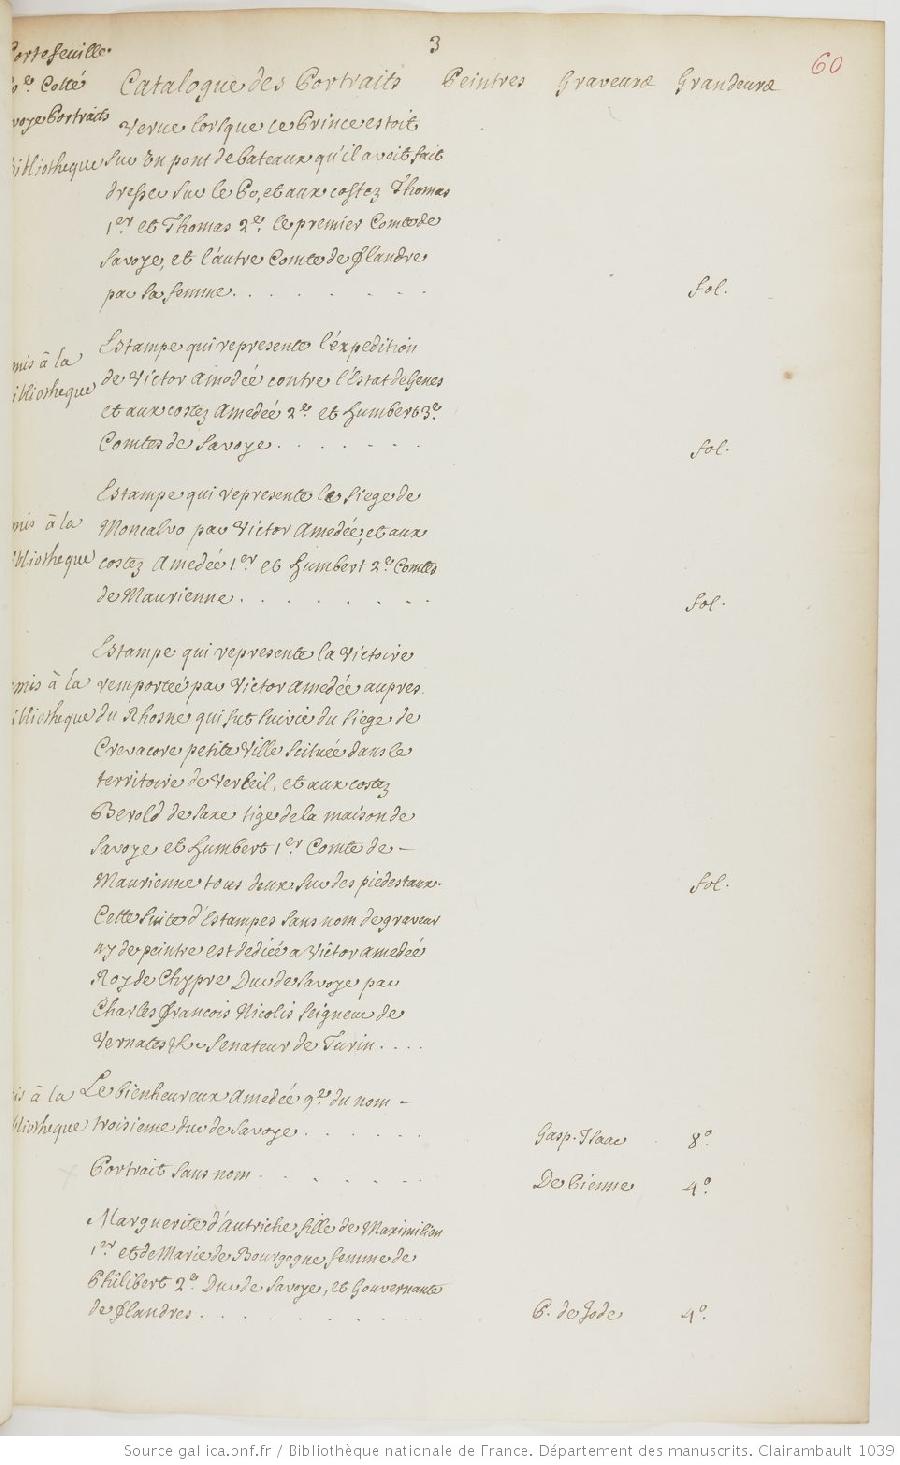 3
60
Portefeuille
Cotté
Savoye Portraits
Catalogue des Portraits Peintres Graveurs Grandeurs
Verue lorsque ce Prince estoit
Bibliotheque sur un pont de bateaux qu'il avoit fait
dresser sur le Po, et aux costez Thomas
1er. et Thomas 2e. le premier Comte de
Savoye, et l'autre Comte de Flandre
par sa femme. . . . . . . . fol.
Estampe qui represente l'expedition
mis à la
bibliotheque de Victor Amedée contre l'Estat de Genes
et aux costez Amedée 2e. et Humbert 3e.
Comtes de Savoye. . . . . . . fol.
Estampe qui represente le siege de
mis à la Moncalvo par Victor Amedée, et aux
bibliotheque costez Amedée 1er. et Humbert 2e. Comtes
de Maurienne. . . . . . . fol.
Estampe qui represente la victoire
mis à la remportée par Victor Amedée aupres
bibliotheque du Rhosne qui fut suivie du siege de
Crevacore petite Ville scituée dans le
territoire de Verceil, et aux costez
Berold de Saxe tige de la maison de
Savoye et Humbert 1er. Comte de –
Maurienne tous deux sur des piedestaux. fol.
Cette suite d'Estampes sans nom de graveur
ny de peintre est dediée a Victor Amedée
Roy de Chypre Duc de Savoye par
Charles François Nicolis Seigneur de
Vernates &c. Senateur de Turin. . . .
mis à la Le bienheureux Amedée 9e. du nom –
bibliotheque troisieme duc de Savoye. . . . . . Gasp. Isaac 8o.
Portrait sans nom. . . . . . . De bienne 4o.
Marguerite d'Autriche fille de Maximilien
1er. et de Marie de Bourgogne femme de
Philibert 2e. Duc de Savoye, et Gouvernante
de Flandres. . . . . . . . P. de Jode 4o.
Source gallica.bnf.fr / Bibliothèque nationale de France. Département des manuscrits. Clairambault 1039